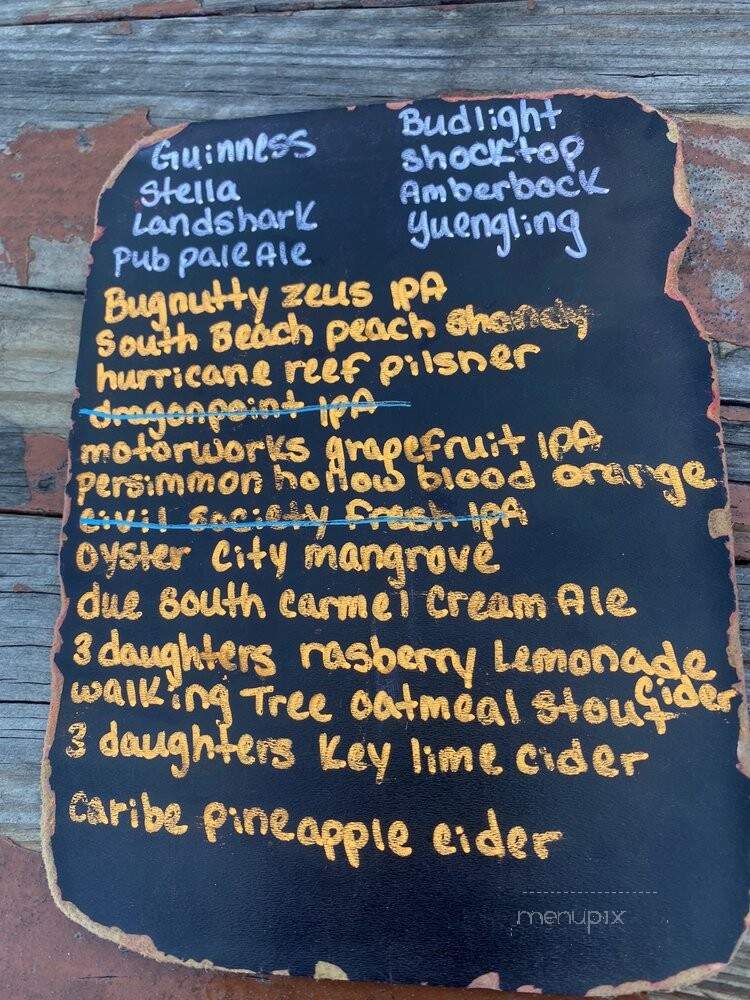 Guinness
Stella
Landshark
Pub pale Ale
Budlight
shocktop
Amberbock
Yuengling
Bugnutty zeus IPA
South Beach peach shandy
hurricane reef pilsner
dragonpoint IPA
motorworks grapefruit IPA
persimmon hollow blood orange
civil society fresh IPA
Oyster City mangrove
due South Carmel Cream Ale
3 daughters rasberry Lemonade
Cider
walking Tree oatmeal stout
3 daughters Key lime cider
Caribe pineapple cider
menupix